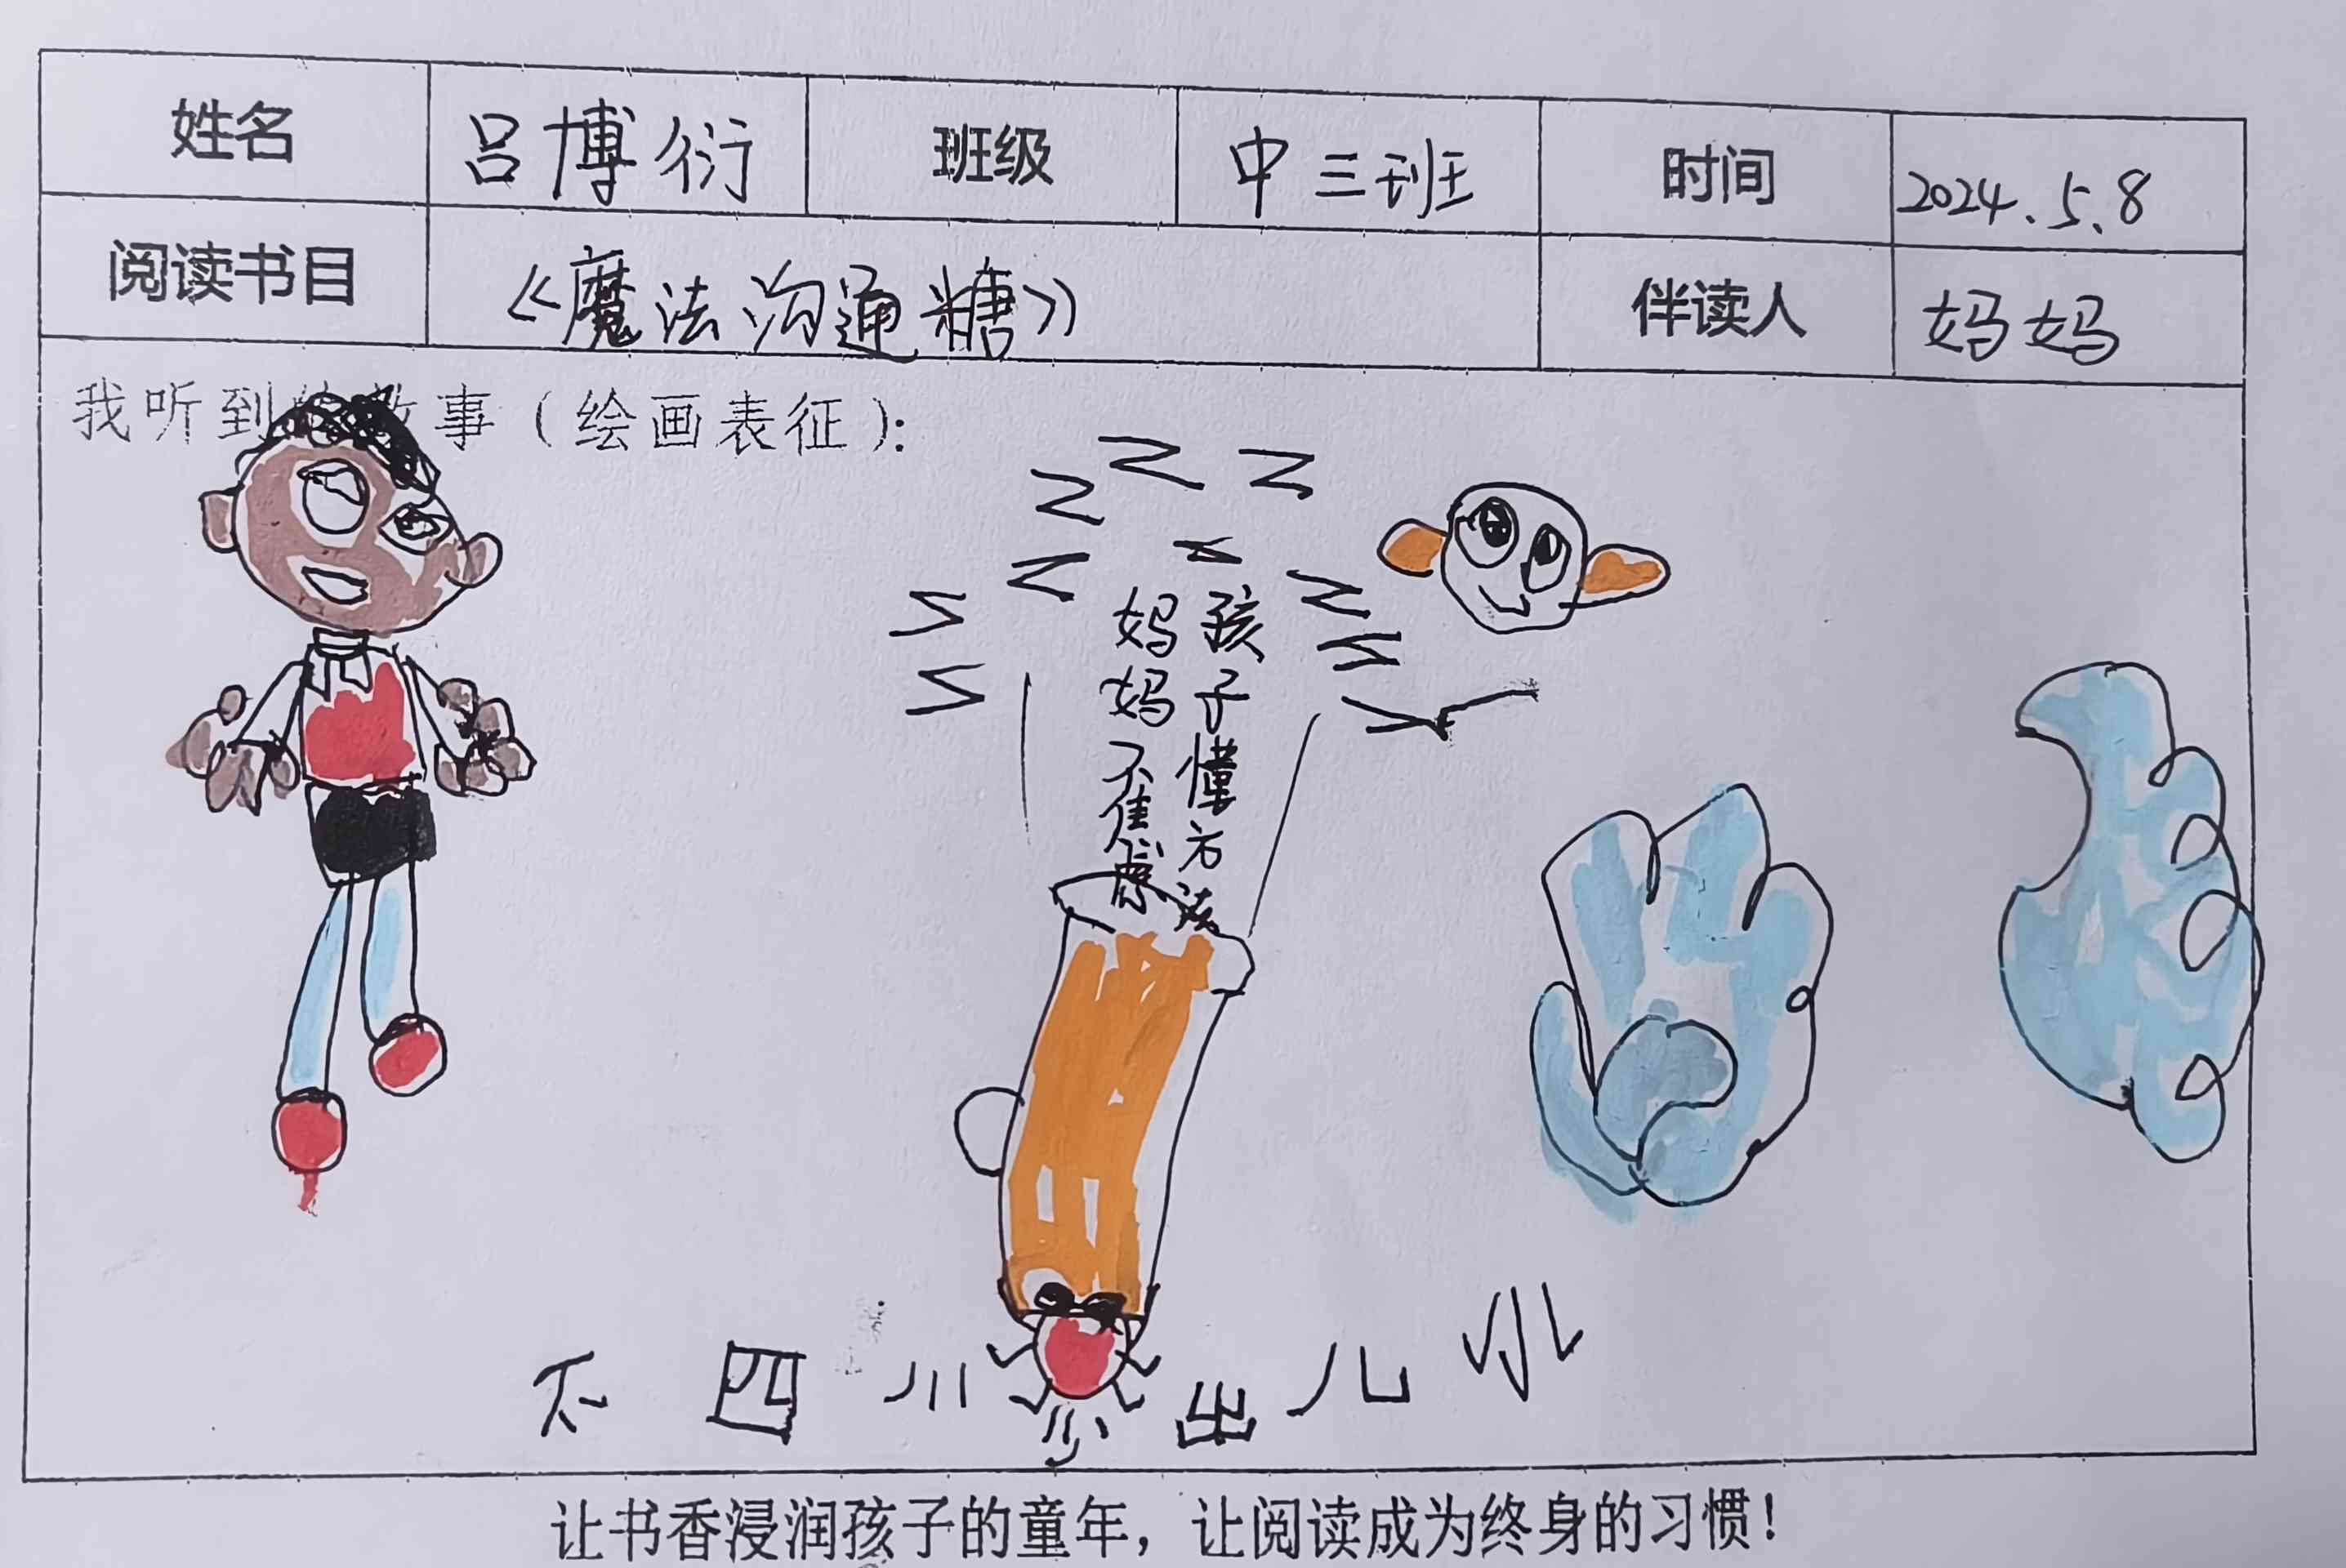 姓名 吕博衍 班级 中三班 时间 2024.5.8
阅读书目 《魔法沟通糖》 伴读人 妈妈
我听到的故事（绘画表征）：
孩子懂方法
妈妈不焦虑
不 四 川 少 出 儿 小
让书香浸润孩子的童年，让阅读成为终身的习惯！